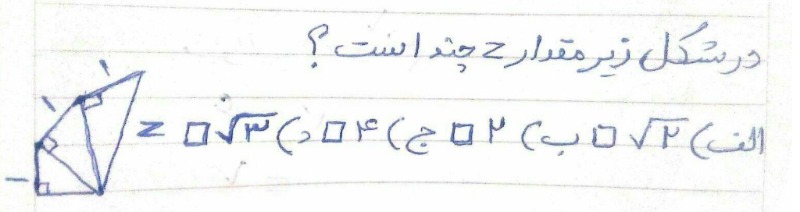 در شکل زیر مقدار z چند است؟
الف) √۲ □ ب) ۲ □ ج) ۴ □ د) √۳ □
z
۱
۱
۱